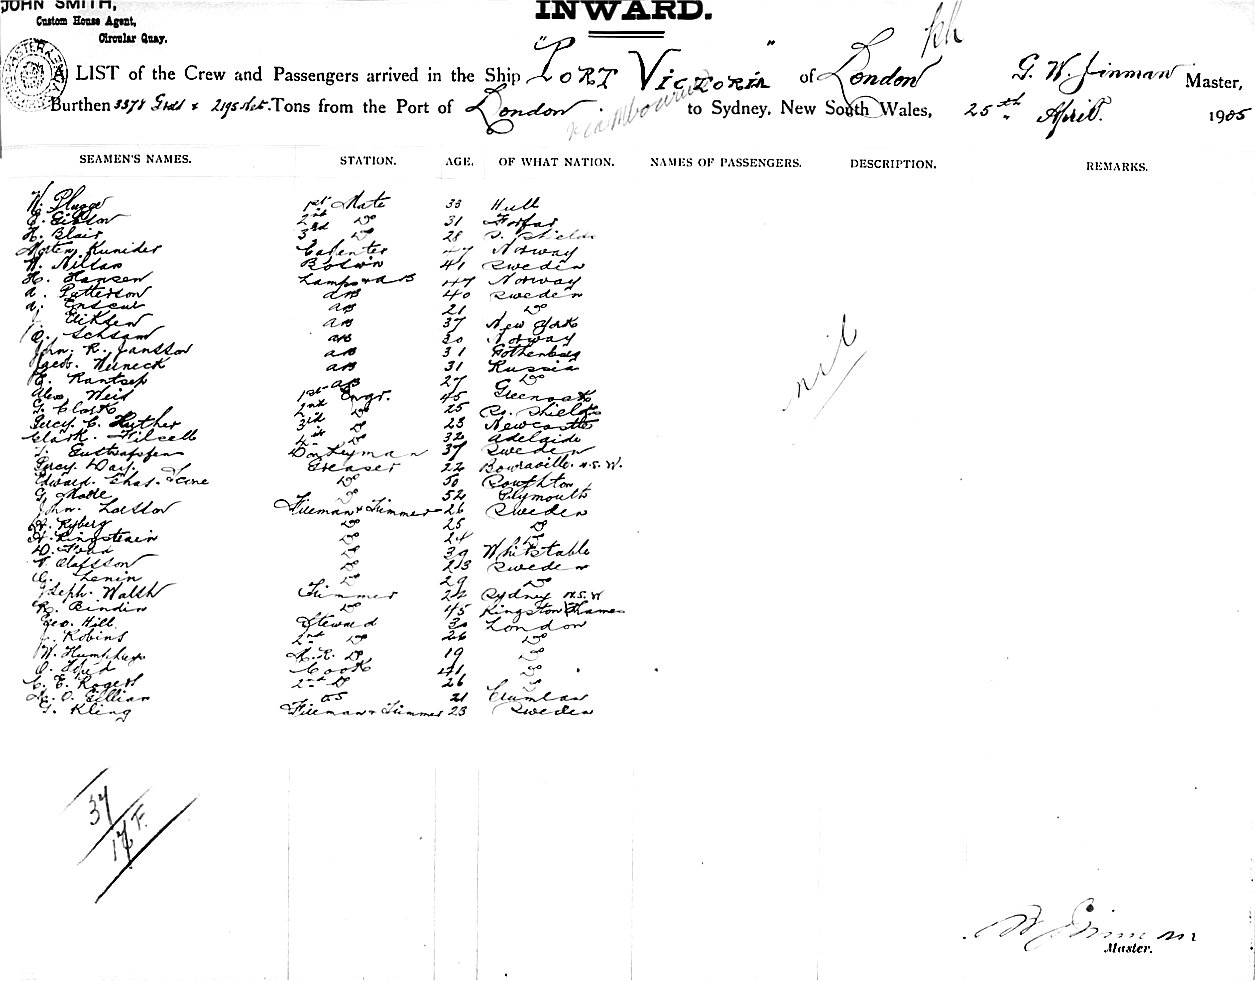 JOHN SMITH,
Custom House Agent,
Circular Quay.
INWARD.
A LIST of the Crew and Passengers arrived in the Ship "PORT VICTORIA" of London G. W. Jinman Master,
Burthen 3378 & 2195 Net. Tons from the Port of London to Sydney, New South Wales, 25th April. 1905
SEAMEN'S NAMES. STATION. AGE. OF WHAT NATION. NAMES OF PASSENGERS. DESCRIPTION. REMARKS.
W. Plugge 1st Mate 33 Hull
E. Gibson 2nd Do 31 Forfar
H. Blair 3rd Do 28 S. Shields
Morten Kunider 47 Norway
W. Nilson Bos'n 41 Sweden
H. Hansen Lamps & AB 47 Norway
A. Patterson AB 40 Sweden
A. AB 21 Do
J. Eriksen AB 37 New York
O. AB 30 Norway
John. R. Jansson AB 31 Gothenburg
AB 31 Russia
E. Rantsep AB 27 Do
Alex. Weir 1st Engr. 45 Greenock
G. Clark 2nd Do 25 So. Shields
Percy. C. Hyther 3rd Do 23 Newcastle
Clark. 4th Do 32 Adelaide
Gustafsson Donkeyman 37 Sweden
Percy. Day. Greaser 22 Bowraville. N.S.W.
Edward. Chas. Do 50
G. Do 52 Plymouth
John. Fireman & Trimmer 26 Sweden
A. Ryberg Do 25 Do
A. Ringstrain Do 24 Do
D. Ford Do 39 Whitstable
V. Olafsson Do 23 Sweden
C. Lenin Do 29 Do
Joseph. Walsh Trimmer 22 Sydney N.S.W
R. Bindin Do 45 Kingston Thames
Geo. Hill. Steward 30 London
J. Robins 2nd Do 26 Do
W. Humphrys M.R. Do 19 Do
O. Cook 41 Do
C. E. Rogers 2nd Do 26 Do
O. Gillian OS 21
G. Kling Fireman & Trimmer 23 Sweden
nil
37
17 F.
W Jinman
Master.